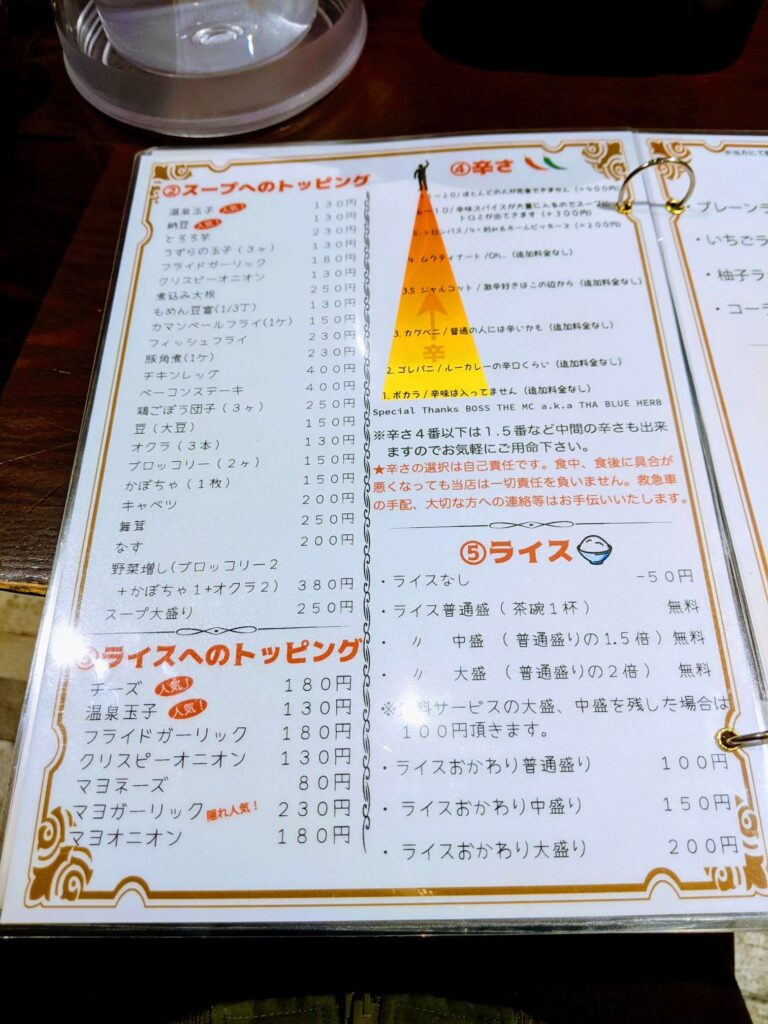 ②スープへのトッピング
温泉玉子 人気！ 130円
納豆 人気！ 130円
とろろ芋 230円
うずらの玉子（3ヶ） 130円
フライドガーリック 180円
クリスピーオニオン 130円
煮込み大根 250円
もめん豆富(1/3丁) 130円
カマンベールフライ(1ケ) 150円
フィッシュフライ 230円
豚角煮(1ケ) 230円
チキンレッグ 400円
ベーコンステーキ 400円
鶏ごぼう団子（3ヶ） 250円
豆（大豆） 150円
オクラ（3本） 130円
ブロッコリー（2ヶ） 150円
かぼちゃ（1枚） 150円
キャベツ 200円
舞茸 250円
なす 200円
野菜増し(ブロッコリー2
＋かぼちゃ1+オクラ2) 380円
スープ大盛り 250円
ライスへのトッピング
チーズ 人気！ 180円
温泉玉子 人気！ 130円
フライドガーリック 180円
クリスピーオニオン 130円
マヨネーズ 80円
マヨガーリック 隠れ人気！ 230円
マヨオニオン 180円
④辛さ
ほとんどの人が完食できません（+400円）
6～10/辛味スパイスが大量に入るのでスープに
トロミが出てきます（+300円）
5. トロンパス/4+（+200円）
4. ムクティナート/Oh...（追加料金なし）
3.5 ジャルコット/激辛好きはこの辺から（追加料金なし）
3. カグベニ/普通の人には辛いかも（追加料金なし）
辛
2. ゴレパニ/ルーカレーの辛口くらい（追加料金なし）
1. ポカラ/辛味は入ってません（追加料金なし）
Special Thanks BOSS THE MC a.k.a THA BLUE HERB
※辛さ4番以下は1.5番など中間の辛さも出来
ますのでお気軽にご用命下さい。
★辛さの選択は自己責任です。食中、食後に具合が
悪くなっても当店は一切責任を負いません。救急車
の手配、大切な方への連絡等はお手伝いいたします。
⑤ライス
・ライスなし -50円
・ライス普通盛（茶碗1杯） 無料
・ 〃 中盛（普通盛りの1.5倍）無料
・ 〃 大盛（普通盛りの2倍） 無料
※料サービスの大盛、中盛を残した場合は
100円頂きます。
・ライスおかわり普通盛り 100円
・ライスおかわり中盛り 150円
・ライスおかわり大盛り 200円
・プレーンラ
・いちごラ
・柚子ラ
・コーラ